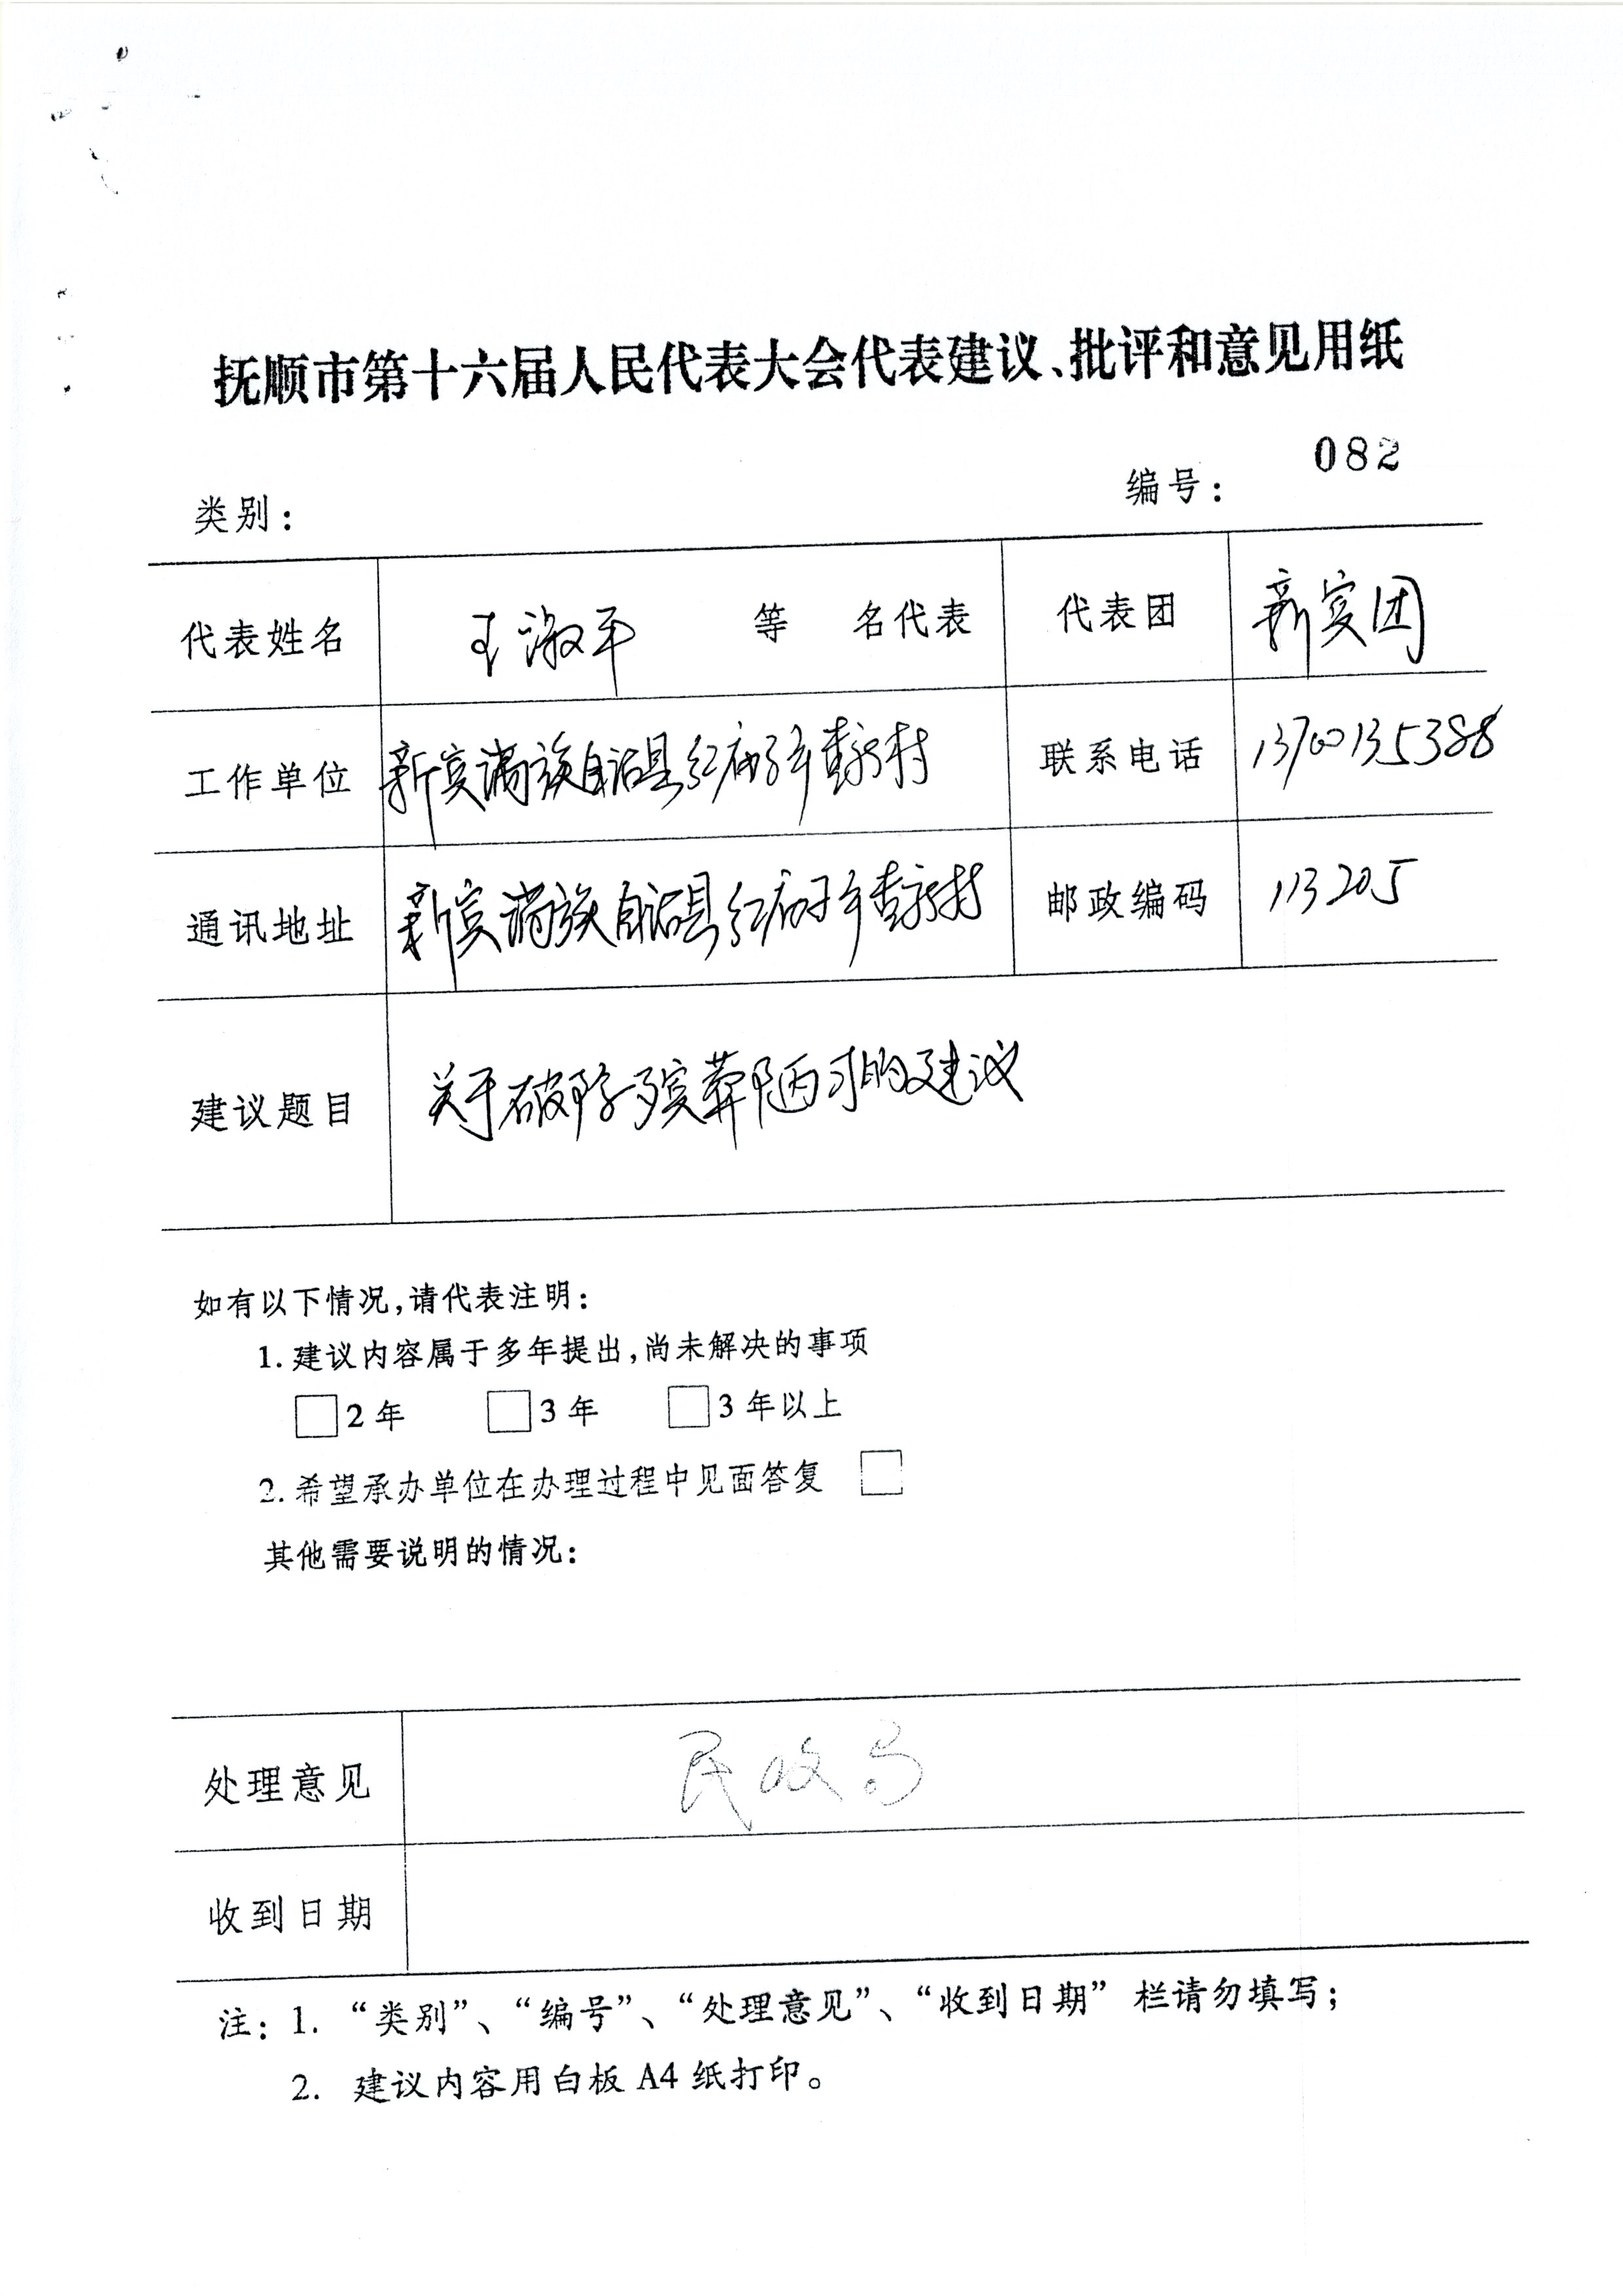 抚顺市第十六届人民代表大会代表建议、批评和意见用纸
类别： 编号： 082
代表姓名 王淑平 等 名代表 代表团 新宾团
工作单位 新宾满族自治县红庙子乡查家村 联系电话 13700135388
通讯地址 新宾满族自治县红庙子乡查家村 邮政编码 113205
建议题目 关于破除殡葬陋习的建议
如有以下情况,请代表注明：
1. 建议内容属于多年提出,尚未解决的事项
2年 3年 3年以上
2. 希望承办单位在办理过程中见面答复
其他需要说明的情况：
处理意见 民政局
收到日期
注：1. “类别”、“编号”、“处理意见”、“收到日期” 栏请勿填写；
2. 建议内容用白板 A4 纸打印。